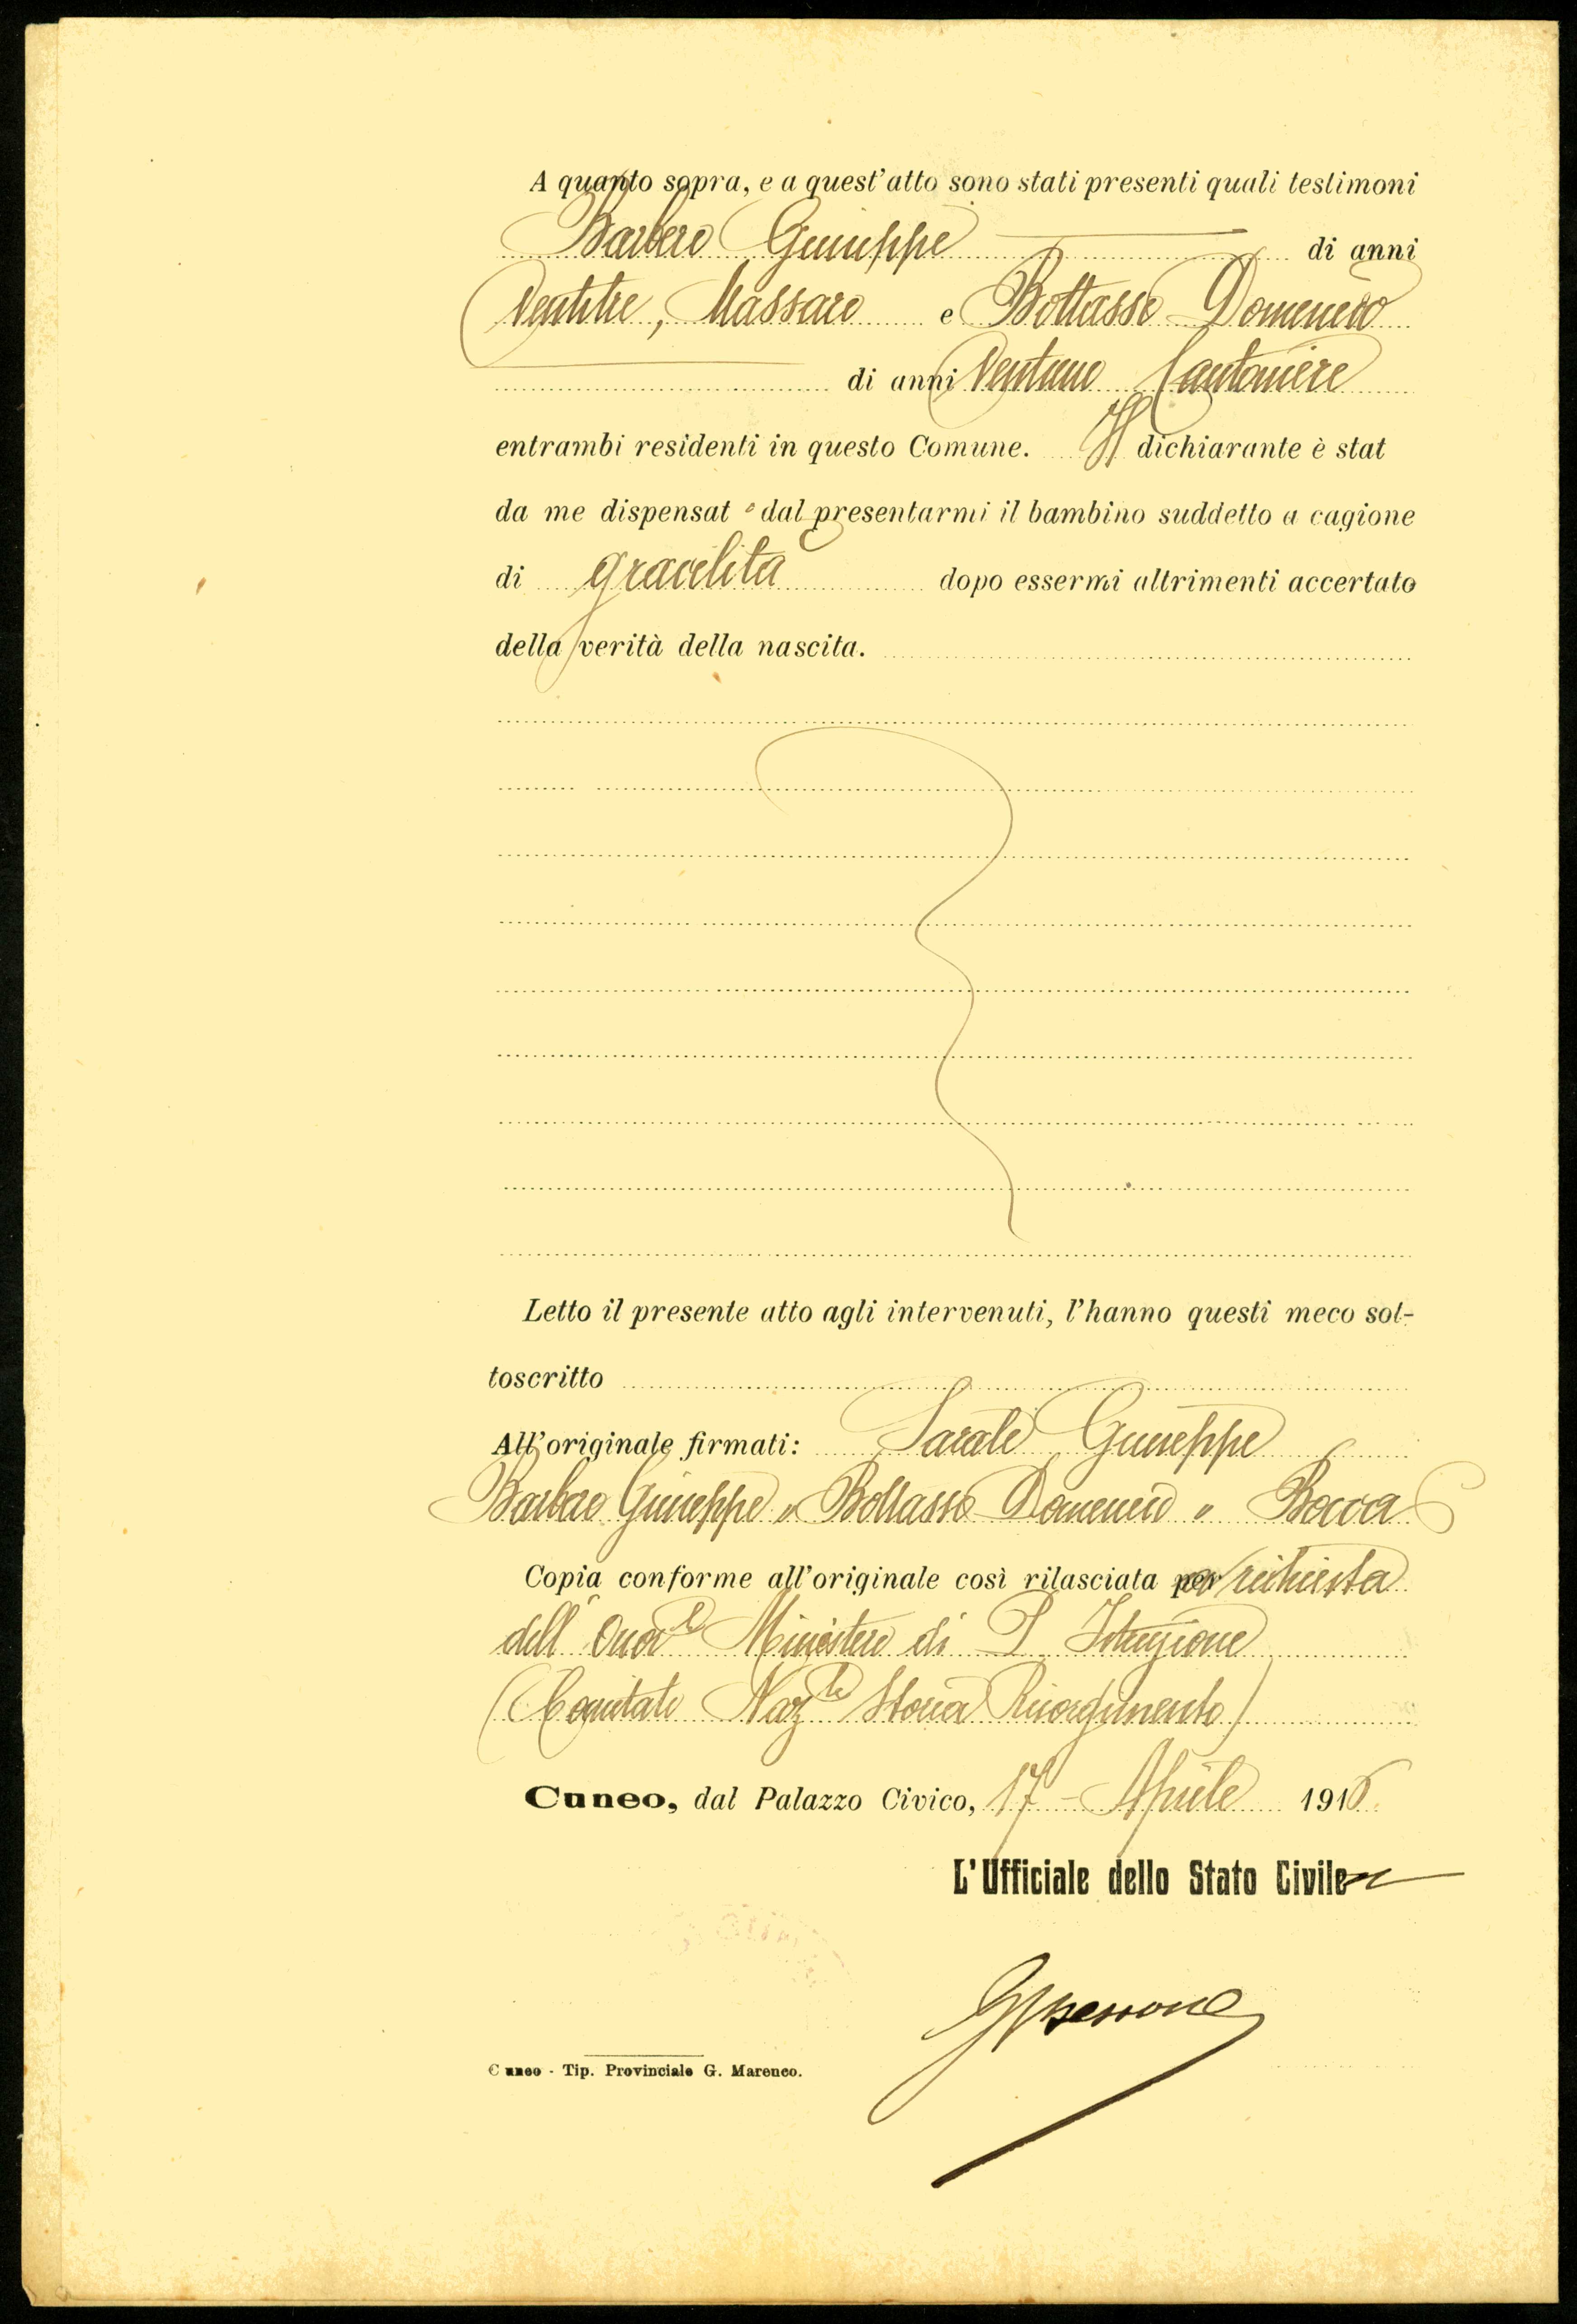 A quanto sopra, e a quest'atto sono stati presenti quali testimoni
Barbero Giuseppe di anni
Ventitre, Massaro e Bottasso Domenico
di anni Ventuno Cantoniere
entrambi residenti in questo Comune. Il dichiarante è stat
da me dispensat o dal presentarmi il bambino suddetto a cagione
di gracilità dopo essermi altrimenti accertato
della verità della nascita.
Letto il presente atto agli intervenuti, l'hanno questi meco sot-
toscritto
All'originale firmati: Sarale Giuseppe
Barbero Giuseppe " Bottasso Domenico " Bocca
Copia conforme all'originale così rilasciata a richiesta
dell' Onor.le Ministero di P. Istruzione
(Comitato Naz.le Storia Risorgimento)
Cuneo, dal Palazzo Civico, 17 - Aprile 1916
L'Ufficiale dello Stato Civile
Cuneo - Tip. Provinciale G. Marenco.